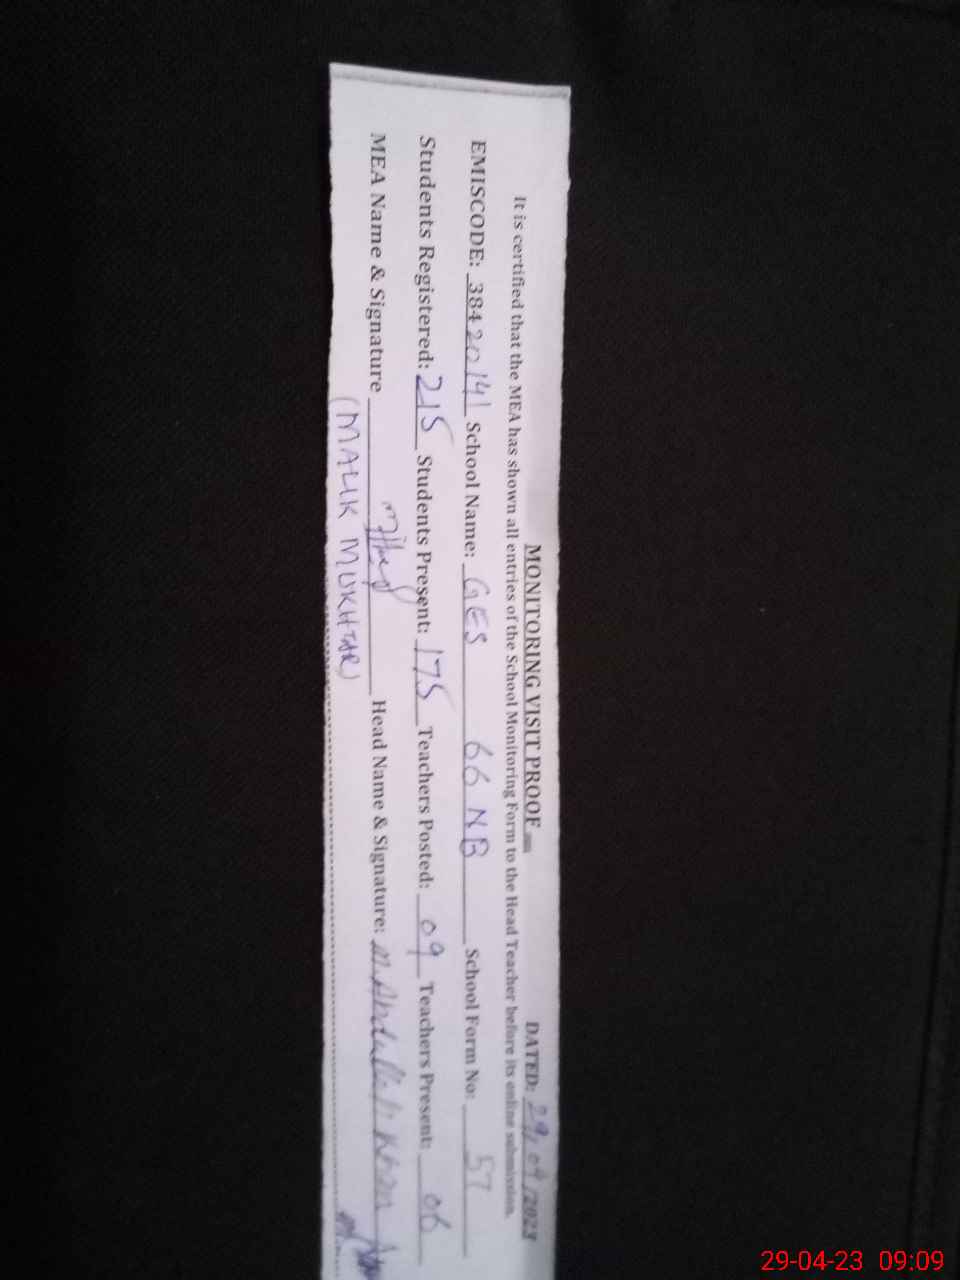 MONITORING VISIT PROOF DATED: 29/04/2023
It is certified that the MEA has shown all entries of the School Monitoring Form to the Head Teacher before its online submission.
EMISCODE: 38420141 School Name: GES 66 NB School Form No: 57
Students Registered: 215 Students Present: 175 Teachers Posted: 09 Teachers Present: 06
MEA Name & Signature Head Name & Signature: M. Abdullah Khan
(MALIK MUKHTAR)
29-04-23 09:09